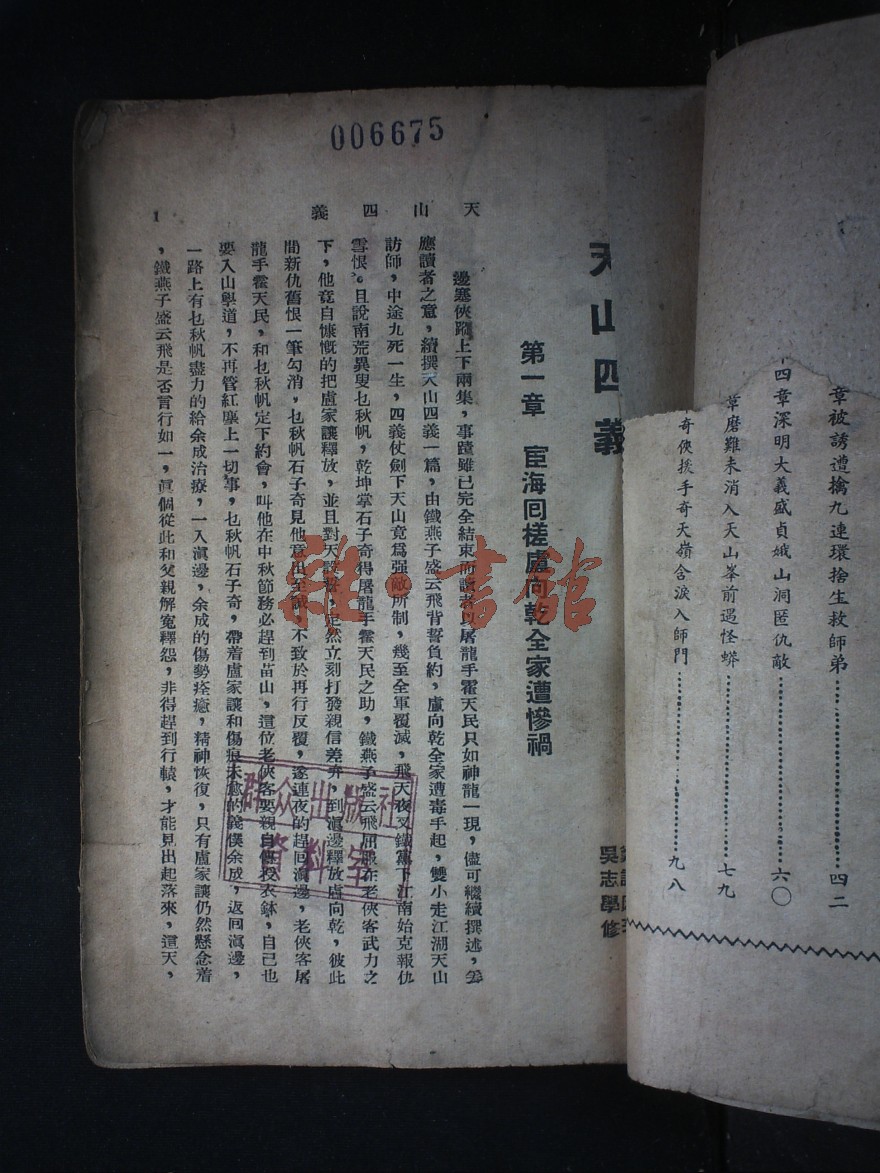 章被誘遭擒九連環捨生救師弟……………四二
四章深明大義盛貞娥山洞匿仇敵……………六〇
章磨難未消入天山峯前遇怪蟒……………七九
奇俠援手奇天嶺含淚入師門……………九八
006675
天山四義
吳志學修
第一章 宦海回槎盧向乾全家遭慘禍
天山四義
邊塞俠蹤上下兩集，事蹟雖已完全結束而讀者以屠龍手霍天民只如神龍一現，儘可繼續撰述，爰
應讀者之意，續撰天山四義一篇，由鐵燕子盛云飛背誓負約，盧向乾全家遭毒手起，雙小走江湖天山
訪師，中途九死一生，四義仗劍下天山竟爲强敵所制，幾至全軍覆滅，飛天夜叉鐵鸞下江南始克報仇
雪恨。且說南荒異叟乜秋帆，乾坤掌石子奇得屠龍手霍天民之助，鐵燕子盛云飛屈服在老俠客武力之
下，他竟自慷慨的把盧家讓釋放，並且對天設誓，定然立刻打發親信差弁，到滇邊釋放盧向乾，彼此
間新仇舊恨一筆勾消，乜秋帆石子奇見他意出至誠，不致於再行反覆，遂連夜的趕回滇邊，老俠客屠
龍手霍天民，和乜秋帆定下約會，叫他在中秋節務必趕到苗山，這位老俠客要親自傳授衣鉢，自己也
要入山學道，不再管紅塵上一切事，乜秋帆石子奇，帶着盧家讓和傷痕未愈的義僕余成，返回滇邊，
一路上有乜秋帆盡力的給余成治療，一入滇邊，余成的傷勢痊癒，精神恢復，只有盧家讓仍然懸念着
，鐵燕子盛云飛是否言行如一，眞個從此和父親解寃釋怨，非得趕到行轅，才能見出起落來，這天，
1
群众出版社
資料室
雜·書館